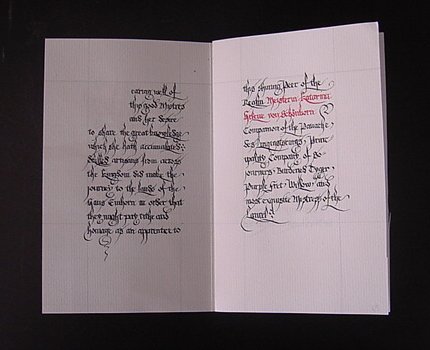 earing well of
this good Mystres
and her desire
to share the great knowledge
which she hath accumulated
artisans from across
the kingdom did make the
journey to the lands of the
Haus Einhorn in order that
they might pay tithe and
homage as an apprentice to
this shining Peer of the
Realm Meisterin Katarina
Helene von Schönborn
Companion of the Panache
Company of
Burdened Tyger
Purple Fret Willow and
most exquisite Mystress of the
Laurel